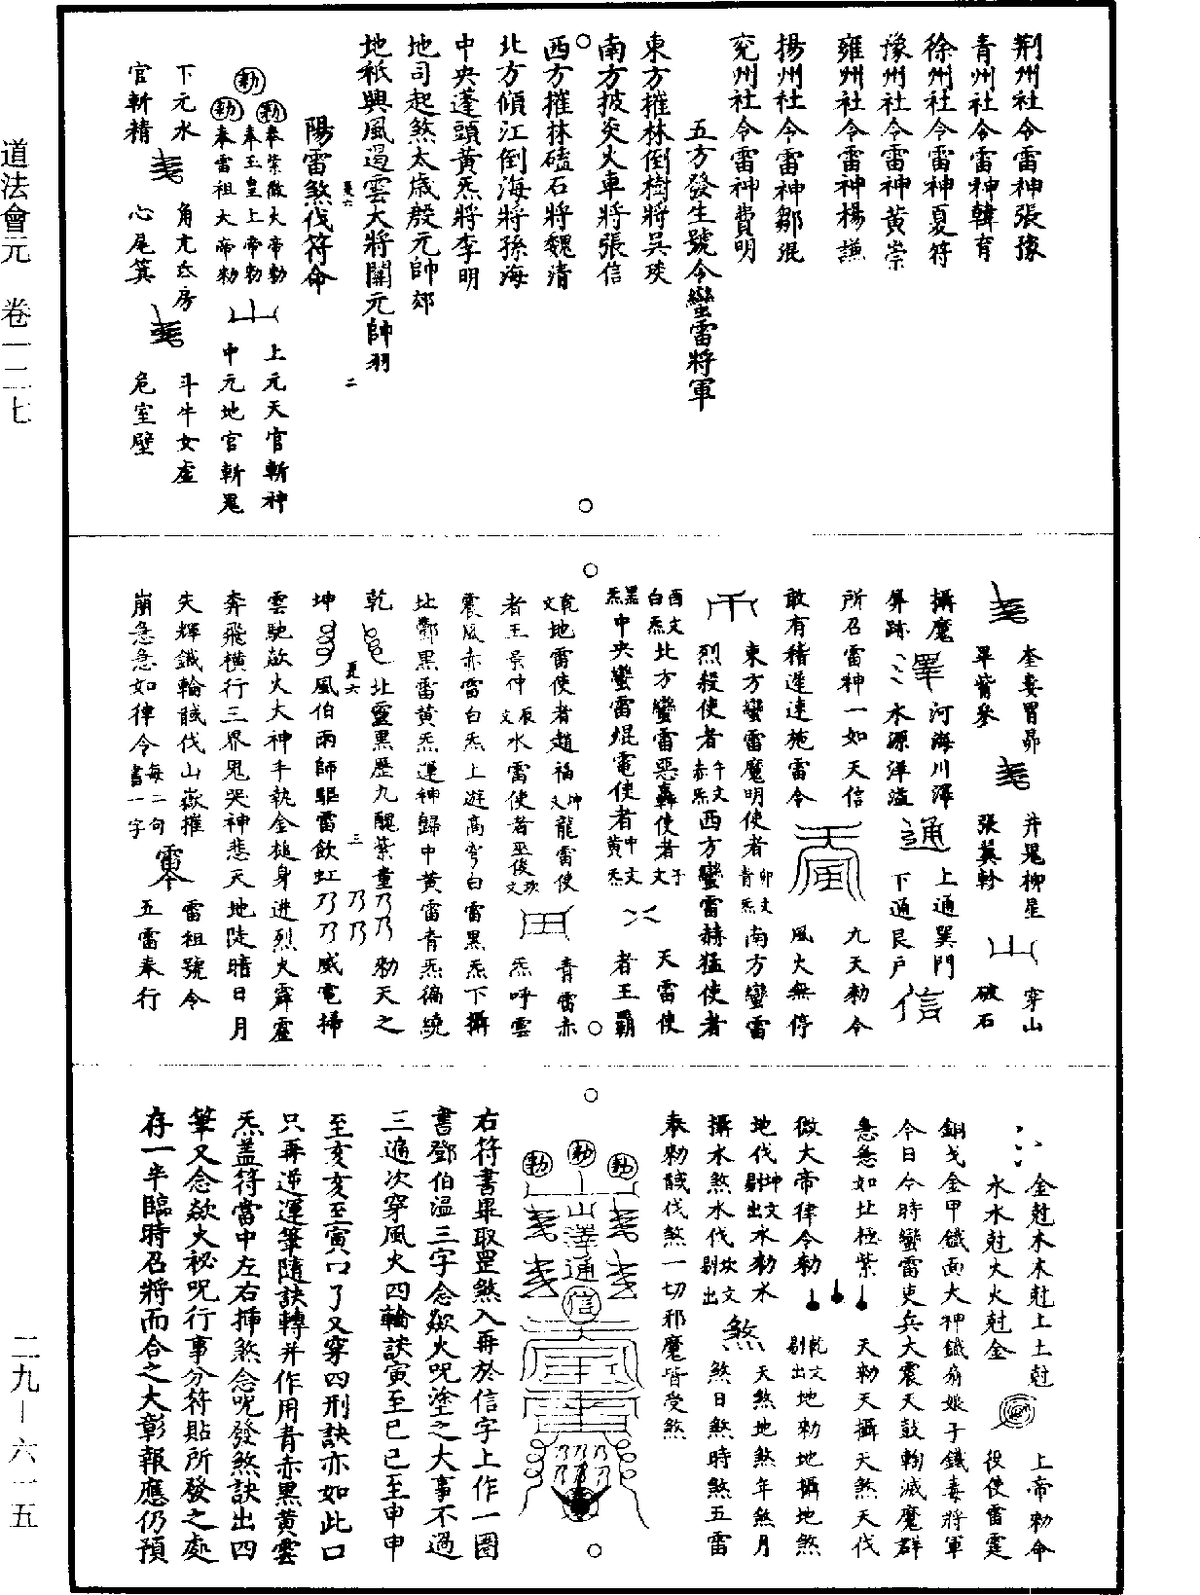 道法會元　卷一二七
二九－六一五
荆州社令雷神張豫
青州社令雷神韓育
徐州社令雷神夏符
豫州社令雷神黃崇
雍州社令雷神楊謙
揚州社令雷神鄒混
兖州社令雷神費明
五方發生號令蠻雷將軍
東方摧林倒樹將吳琰
南方披炎火車將張信
西方摧林磕石將魏清
北方傾江倒海將孫海
中央蓬頭黃炁將李明
地司起煞太歲殷元帥郊
地祇興風遏雲大將關元帥羽
陽雷煞伐符命
勑奉紫微大帝勑　上元天官斬神
勑奉玉皇上帝勑
勑奉雷祖大帝勑　中元地官斬鬼
下元水　角亢氐房　斗牛女虛
官斬精　心尾箕　危室壁
奎婁胃昴　井鬼柳星　穿山
畢觜參　張翼軫　破石
攝魔　河海川澤　上通巽門
屏跡　水源洋溢　通　下通艮户　信
所召雷神一如天信　九天勑令
敢有稽遲速施雷令　風火無停
東方蠻雷魔明使者卯文青炁南方蠻雷
烈殺使者午文赤炁西方蠻雷赫猛使者
酉文白炁北方蠻雷惡轟使者子文　天雷使
黑炁中央蠻雷焜電使者中文黃炁　者王霸
乾文地雷使者趙福坤文龍雷使　青雷赤
者王景仲辰文水雷使者巫俊坎文　炁呼雲
震風赤雷白炁上遊高穹白雷黑炁下攝
北酆黑雷黃炁運神歸中黃雷青炁徧繞
乾　北靈黑歷九醜紫童乃乃乃乃勑天之
坤　風伯雨師驅雷飲虹乃乃乃威電掃
雲馳歘火大神手執金槌身迸烈火霹靂
奔飛橫行三界鬼哭神悲天地陡暗日月
失輝鐵輪馘伐山嶽摧　雷祖號令
崩急急如律令每二句書一字　五雷奉行
金尅木木尅土土尅　上帝勑命
水水尅火火尅金　役使雷霆
銅戈金甲鐵面大神鐵扇娘子鐵毒將軍
今日今時蠻雷吏兵大震天鼓翰滅魔群
急急如北極紫　天勑天攝天煞天伐
微大帝律令勑　乾文剔出地勑地攝地煞
地伐坤文剔出水勑水　天煞地煞年煞月
攝水煞水伐坎文剔出　煞　煞日煞時煞五雷
奉勑馘伐煞一切邪魔皆受煞
勑　勑　勑
山澤通信
右符書畢取罡煞入再於信字上作一圈
書鄧伯温三字念歘火咒塗之大事不過
三遍次穿風火四輪訣寅至巳巳至申申
至亥亥至寅口了又穿四刑訣亦如此口
只再逆運筆隨訣轉并作用青赤黑黃雲
炁蓋符當中左右揷煞念呪發煞訣出四
筆又念歘火祕呪行事分符貼所發之處
存一半臨時召將而合之大彰報應仍預